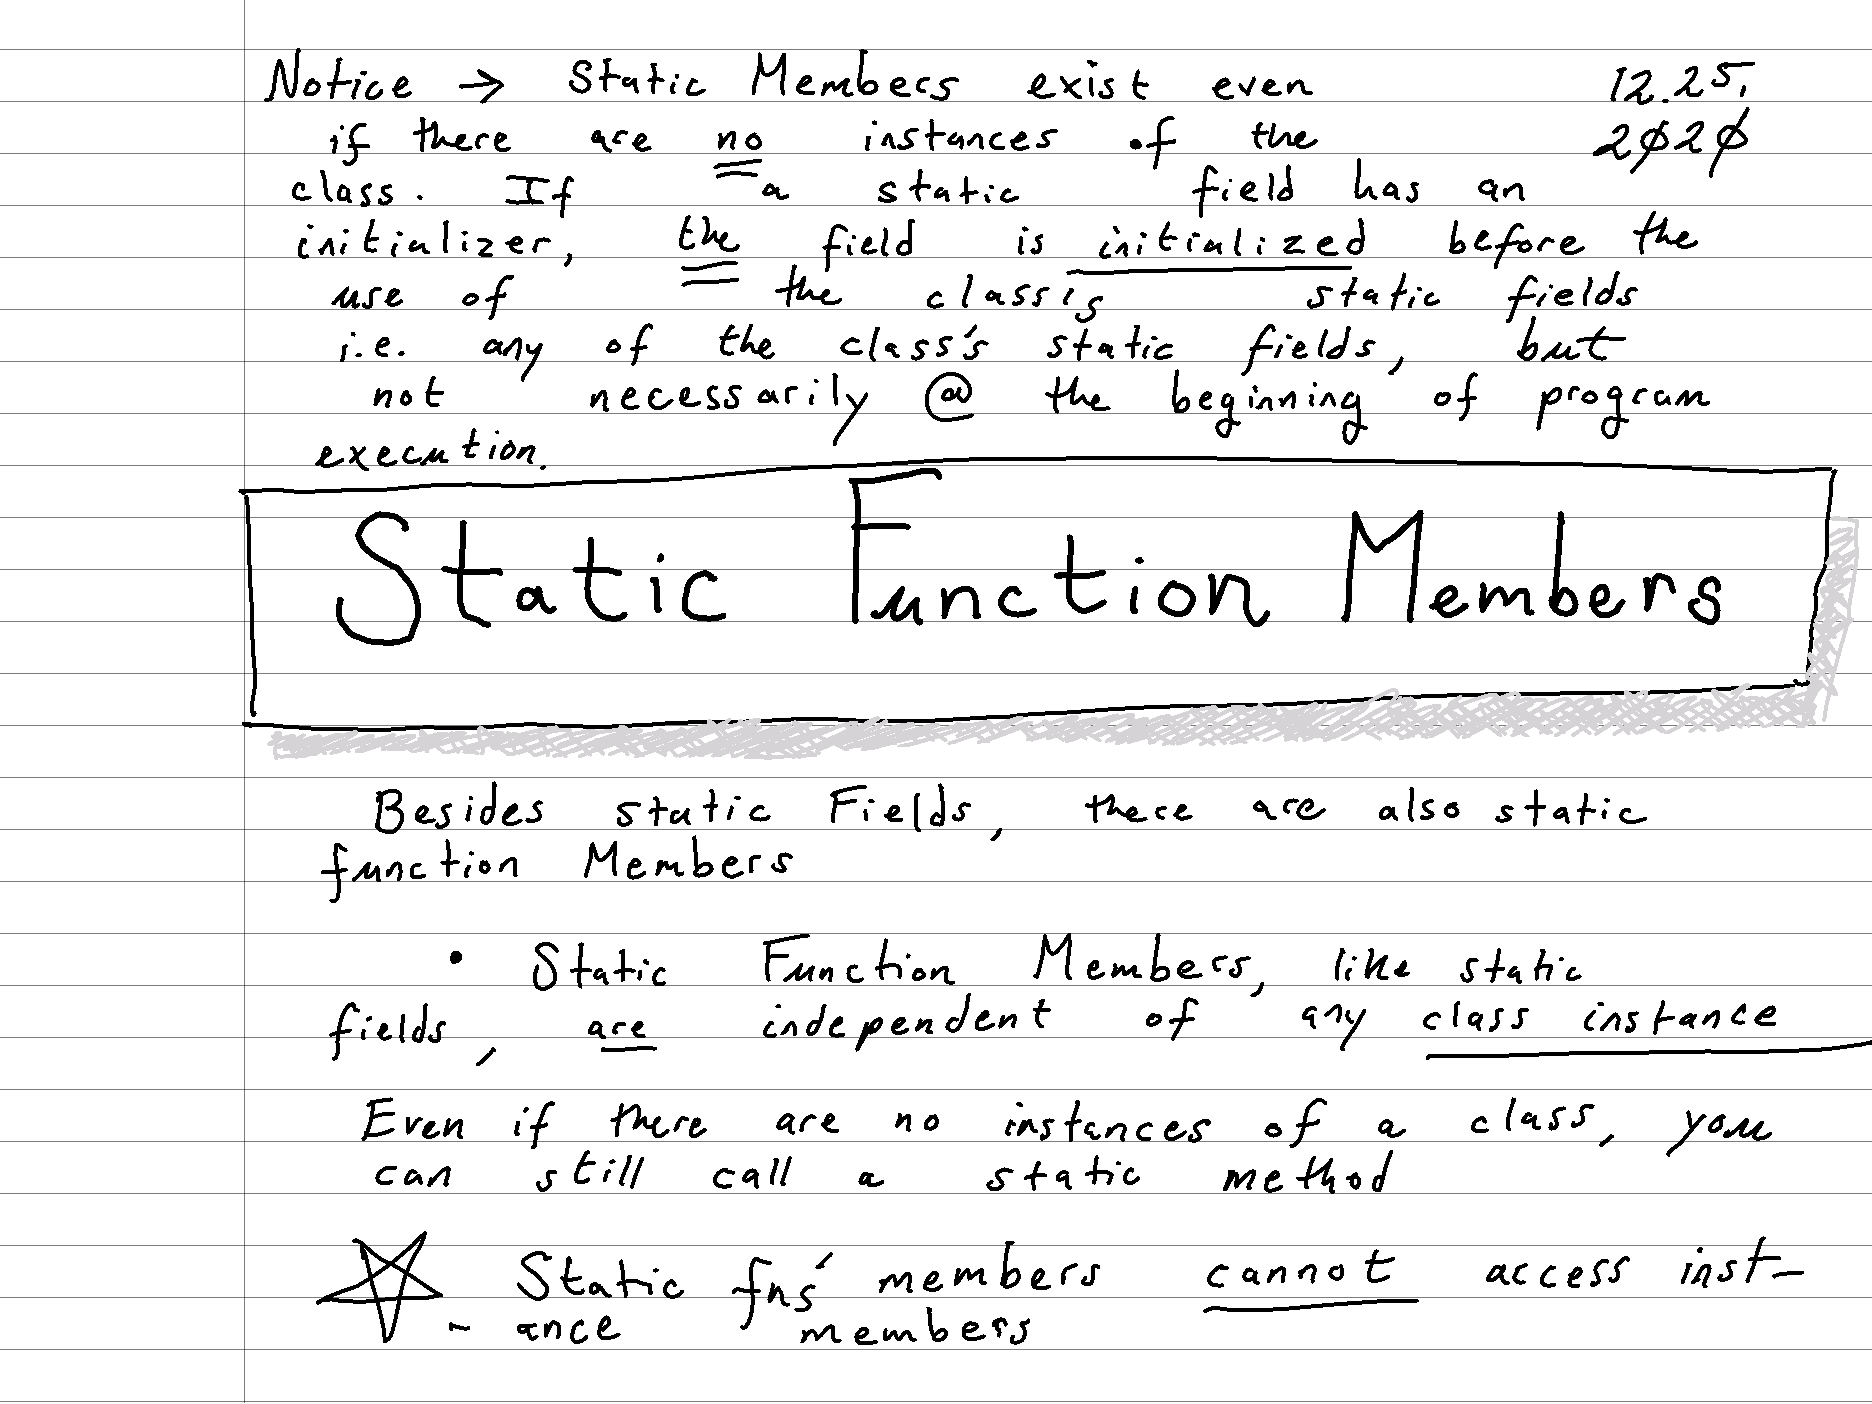 Notice → Static Members exist even 12.25.
if there are no instances of the 2020
class. If a static field has an
initializer, the field is initialized before the
use of the class's static fields
i.e. any of the class's static fields, but
not necessarily @ the beginning of program
execution.
Static Function Members
Besides static Fields, there are also static
function Members
• Static Function Members, like static
fields, are independent of any class instance
Even if there are no instances of a class, you
can still call a static method
☆ Static fns' members cannot access inst-
- ance members